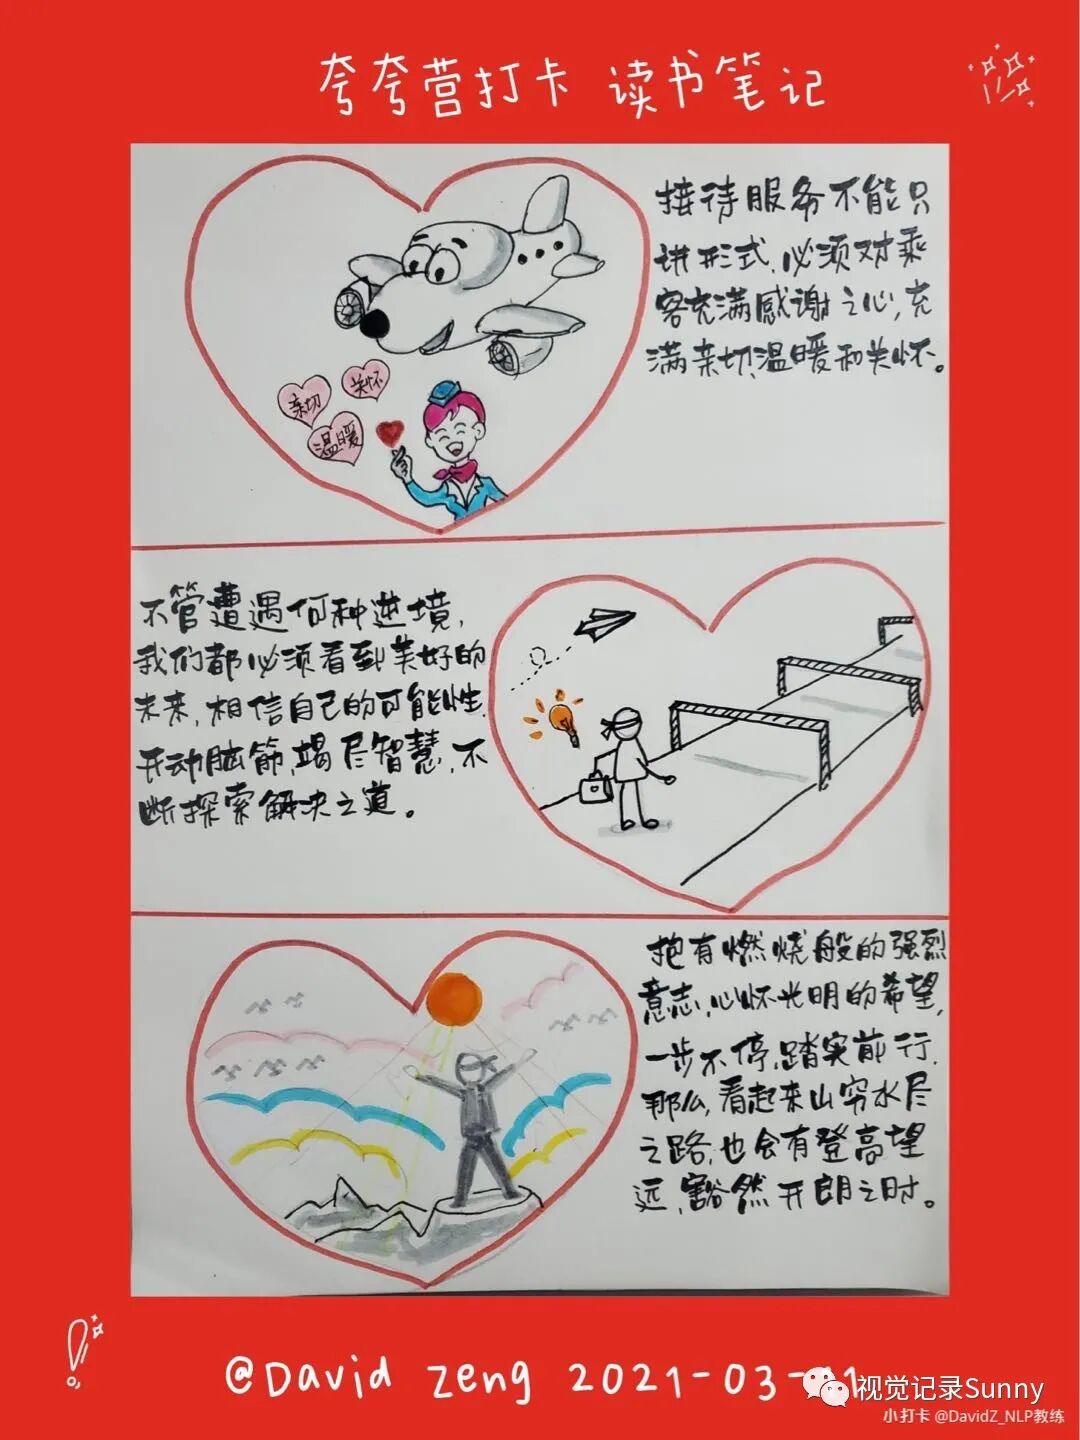 夸夸营打卡 读书笔记
接待服务不能只
讲形式，必须对乘
客充满感谢之心，充
满亲切、温暖和关怀。
亲切
关怀
温暖
不管遭遇何种逆境，
我们都必须看到美好的
未来，相信自己的可能性，
开动脑筋，竭尽智慧，不
断探索解决之道。
抱有燃烧般的强烈
意志，心怀光明的希望，
一步不停，踏实前行，
那么，看起来山穷水尽
之路，也会有登高望
远，豁然开朗之时。
@David Zeng 2021-03-11
视觉记录Sunny
小打卡 @DavidZ_NLP教练